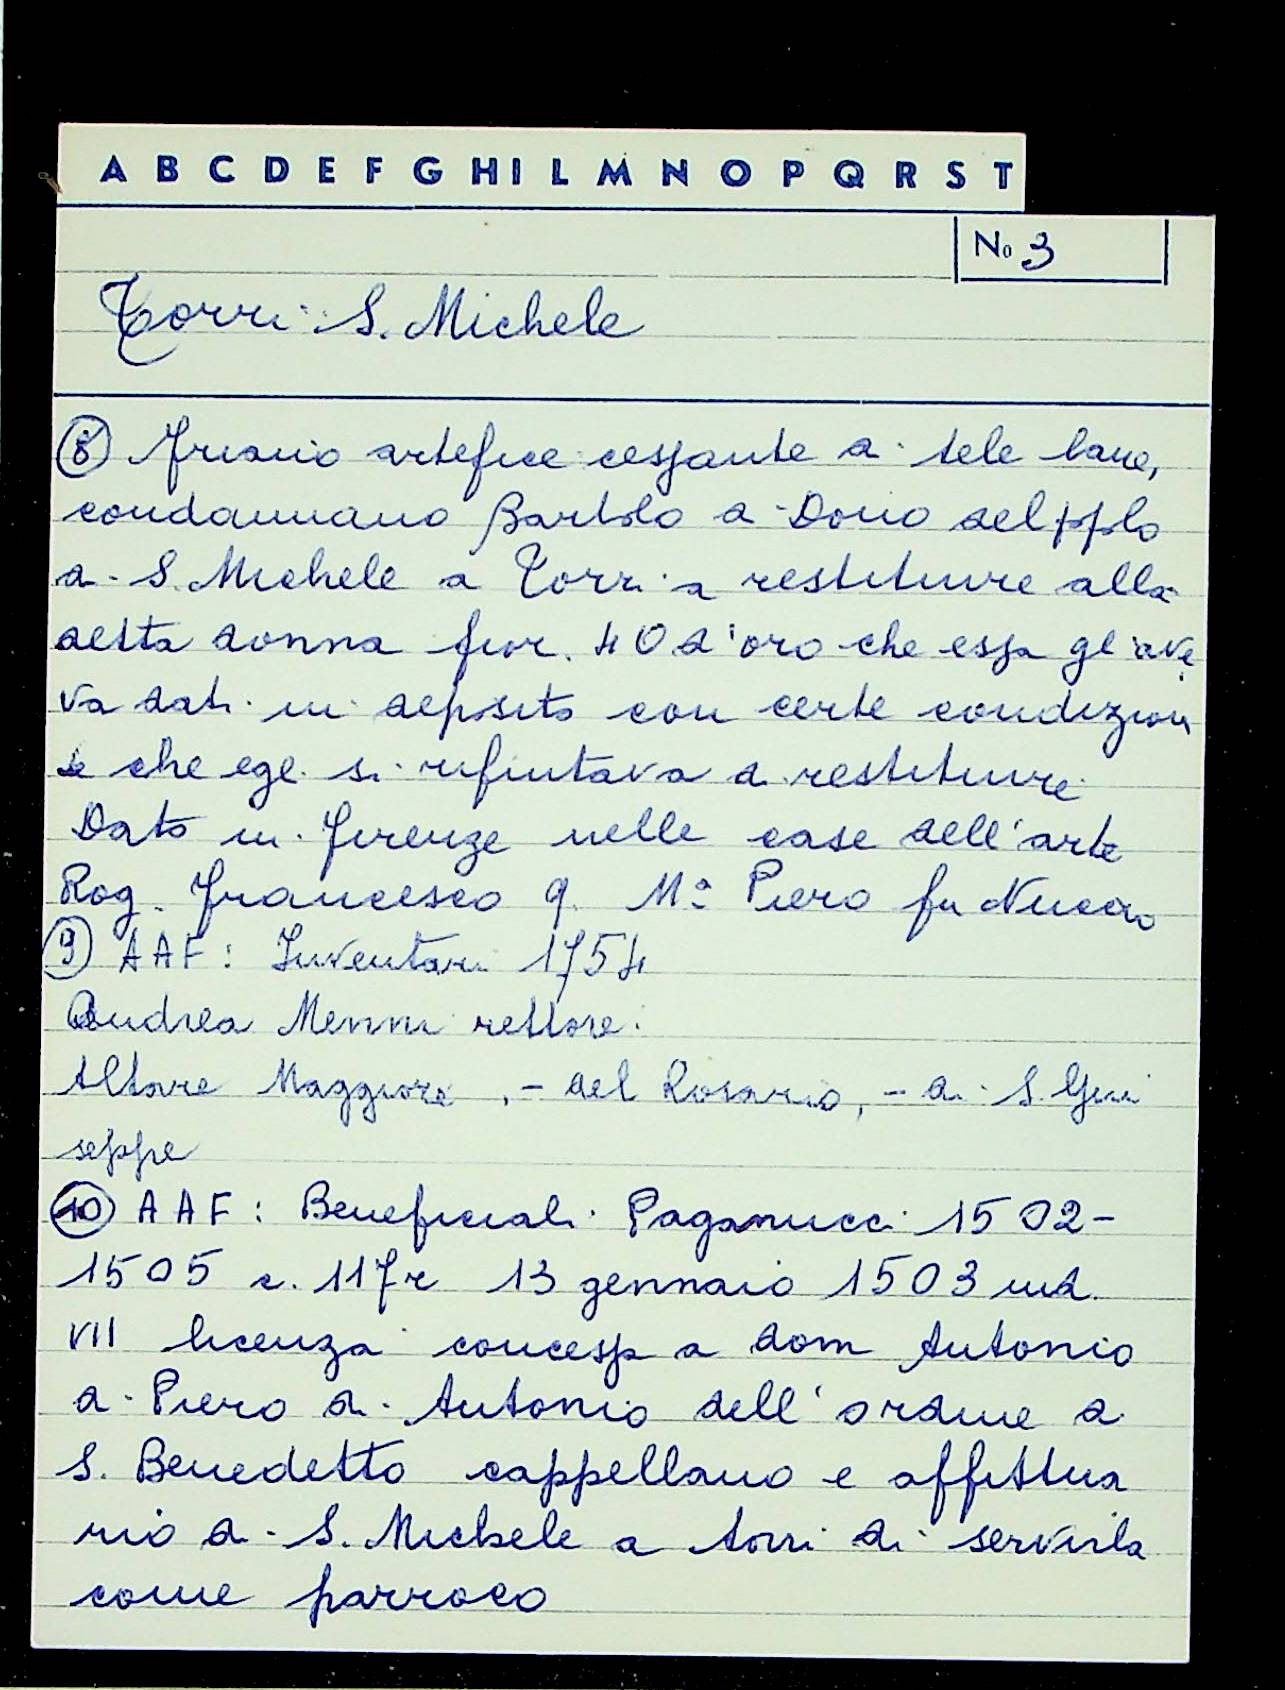 A B C D E F G H I L M N O P Q R S T
No 3
Torri: S. Michele
8 artefice cessante di tele lane,
condannano Bartolo di Dono del pplo
di S. Michele a Torri a restituire alla
detta donna fior. 40 d'oro che essa gl'ave
va dati in deposito con certe condizioni
e che egli si rifiutava di restituire
Dato in Firenze nelle case dell'arte
Rog. Francesco q. Mº Piero fu Nuccio
9 AAF: Inventari 1754
Andrea Menni rettore.
Altare Maggiore, - del Rosario, - di S. Giu
seppe
10 AAF: Beneficiali Paganucci 1502-
1505 c. 117r 13 gennaio 1503 ind.
VII licenza concessa a dom Antonio
di Piero di Antonio dell'ordine di
S. Benedetto cappellano e affittua
rio di S. Michele a torri di servirla
come parroco